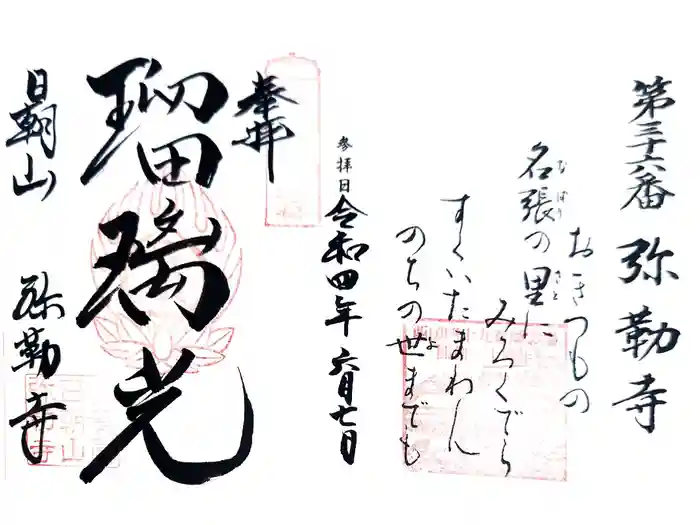 第三十六番 弥勒寺
おきつもの
名張の里に
なばり
さと
みろくでら
すくいたまわん
のちの世までも
よ
参拝日 令和四年 六月七日
奉拝
瑠璃光
日朝山 弥勒寺